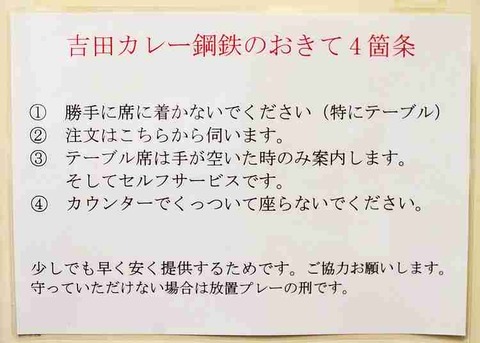 吉田カレー鋼鉄のおきて４箇条
① 勝手に席に着かないでください（特にテーブル）
② 注文はこちらから伺います。
③ テーブル席は手が空いた時のみ案内します。
そしてセルフサービスです。
④ カウンターでくっついて座らないでください。
少しでも早く安く提供するためです。ご協力お願いします。
守っていただけない場合は放置プレーの刑です。